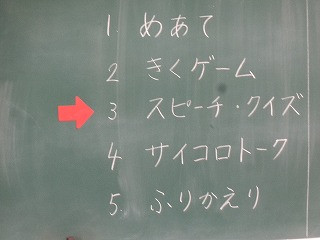 1. めあて
2 きくゲーム
3 スピーチ・クイズ
4 サイコロトーク
5. ふりかえり